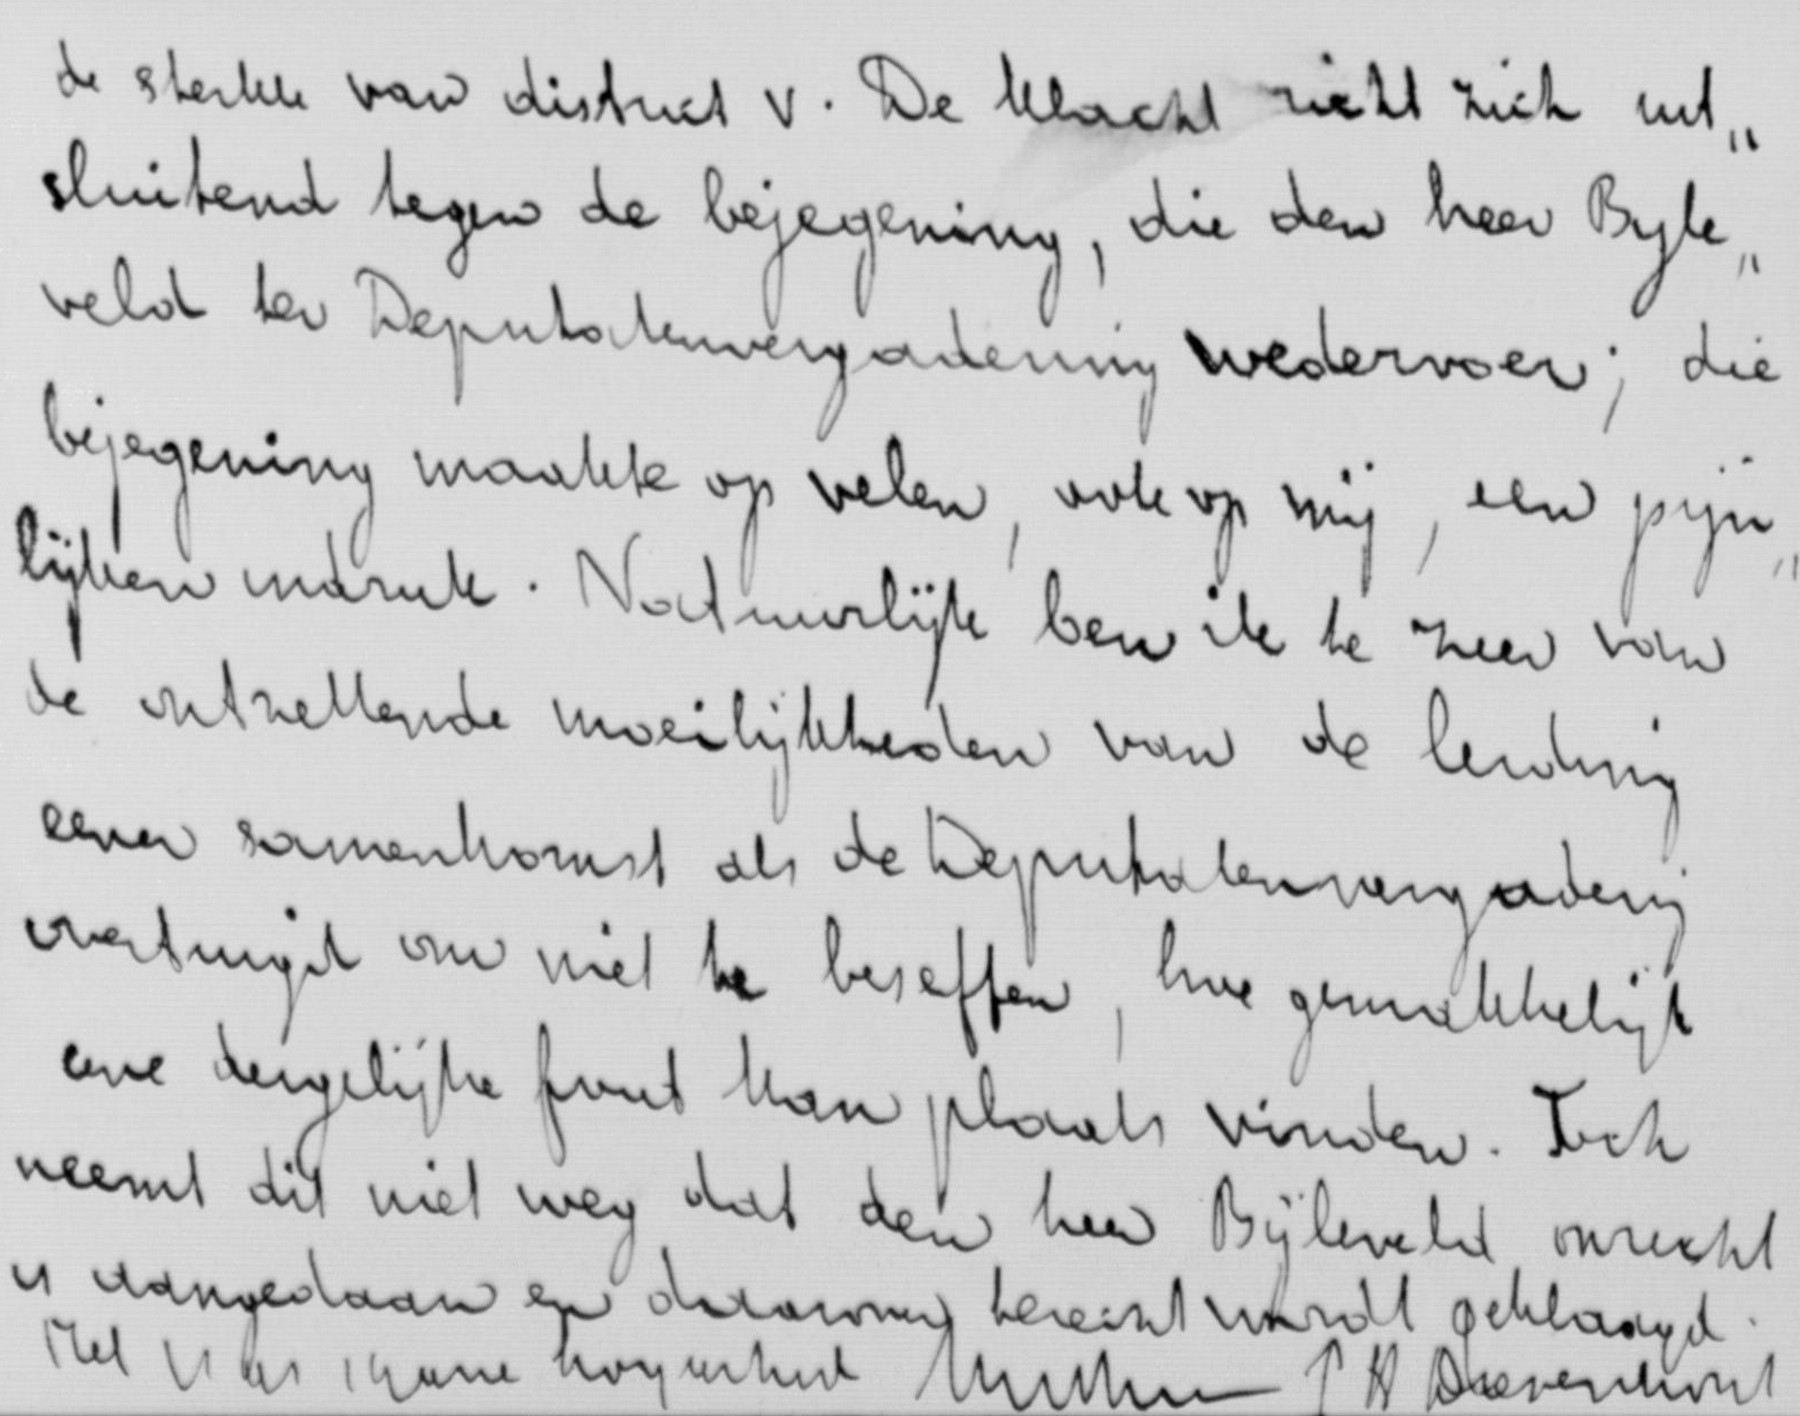 de sterkte van district V. De klacht richt zich uit„
sluitend tegen de bejegening, die den heer Byle„
veld ter Deputatenvergadering wedervoer; die
bejegening maakte op velen, ook op mij, een pijn„
lijken indruk. Natuurlijk ben ik te zeer van
de ontzettende moeilijkheden van de leiding
eener samenkomst als de Deputatenvergadering
overtuigd om niet te beseffen, hoe gemakkelijk
eene dergelijke fout kan plaats vinden. Toch
neemt dit niet weg dat den heer Bijleveld onrecht
is aangedaan en daarover terecht wordt geklaagd.
Met de meeste hoogachting